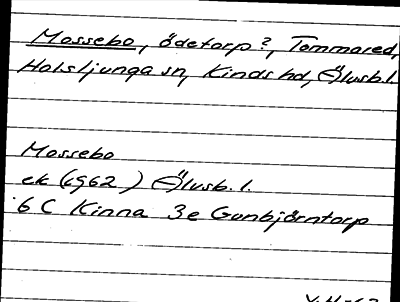 Mossebo, ödetorp?, Tommared,
Holsljunga sn, Kinds hd, Älvsb.l.
Mossebo
ek (1962) Älvsb.l.
6 C Kinna 3e Gunbjörntorp